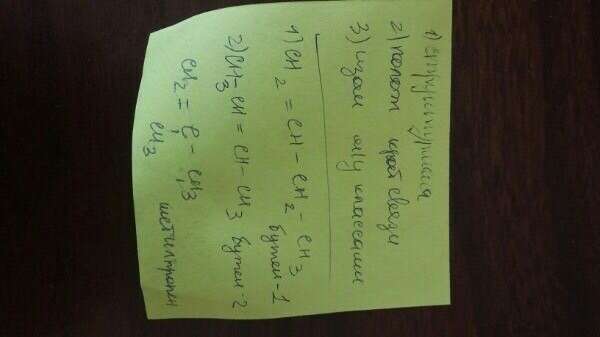 1) структурная
2) полож крат связи
3) изом м/у классами
1) CH2 = CH - CH2 - CH3
бутен-1
2) CH3 - CH = CH - CH3 бутен-2
CH2 = C - CH3
CH3
метилпропен